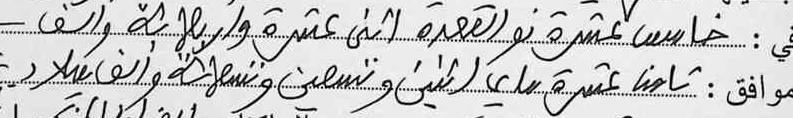 في : خامس عشرة ذو القعدة اثنى عشرة واربعمائة والف -
موافق : ثامن عشرة ماي اثنين وتسعين وتسعمائة وألف ميلادية